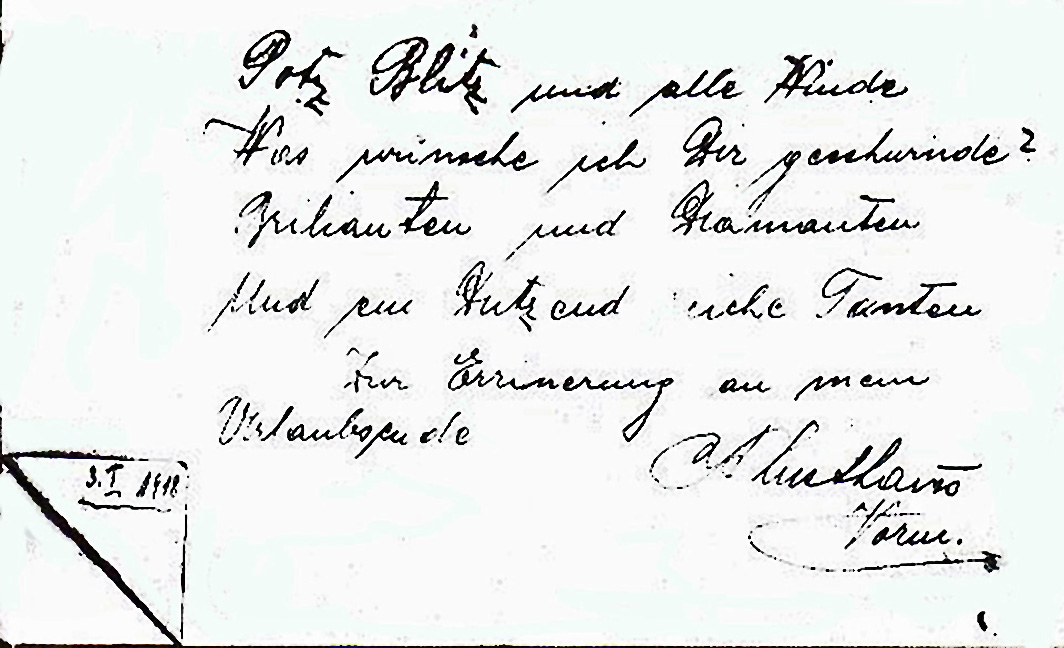 Potz Blitz und alle Winde
Was wünsche ich Dir geschwinde?
Brilianten und Diamanten
Und ein Dutzend reiche Tanten
Zur Errinerung an mein
Urlaubsende
3.I 1918